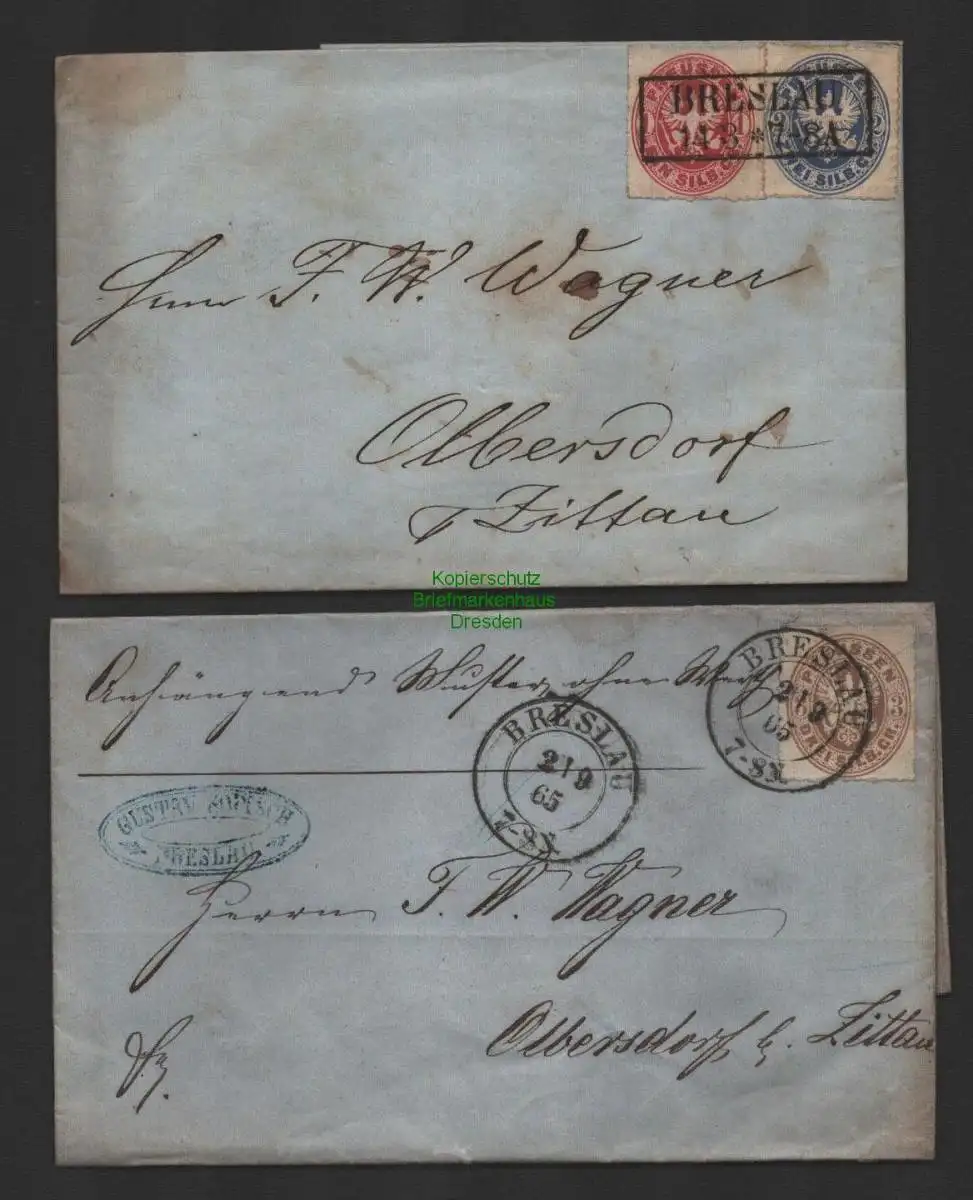 BRESLAU
14 3 * 7-8A
EIN SILB.GR.
ZWEI SILB.GR.
Herrn F. W. Wagner
Olbersdorf
b/ Zittau
Kopierschutz
Briefmarkenhaus
Dresden
Anhängend Muster ohne Werth
BRESLAU
21 9
65
7-8
PREUSSEN
DREI SILB.GR.
BRESLAU
21 9
65
7-8
GUSTAV
BRESLAU
Herrn F. W. Wagner
Olbersdorf b. Zittau